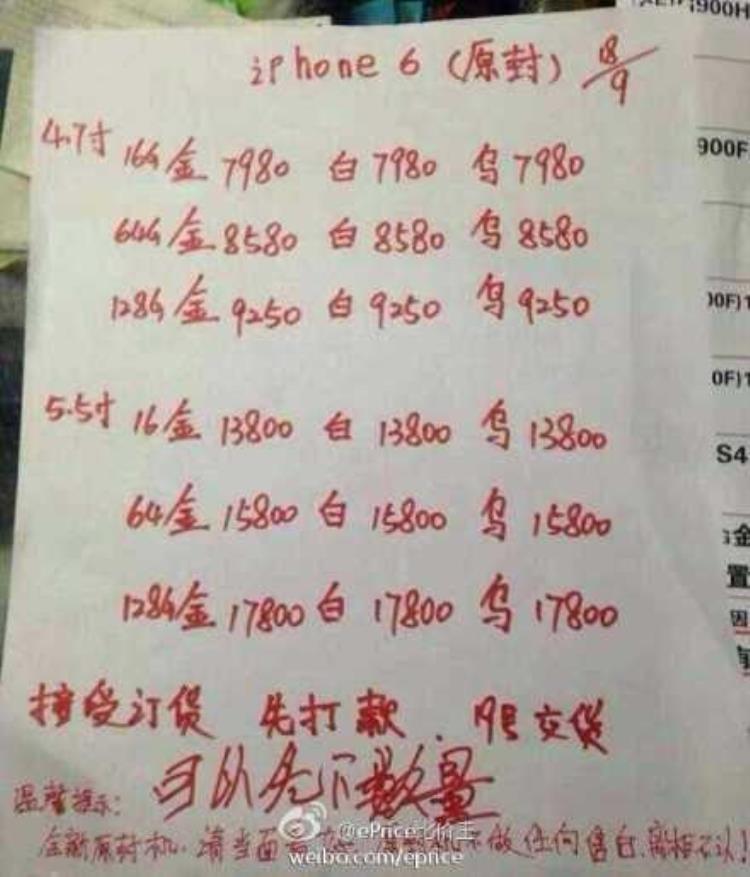 iPhone 6 (原封) 18/9
4.7寸 16G 金 7980 白 7980 乌 7980
64G 金 8580 白 8580 乌 8580
128G 金 9250 白 9250 乌 9250
5.5寸 16 金 13800 白 13800 乌 13800
64 金 15800 白 15800 乌 15800
128G 金 17800 白 17800 乌 17800
接受订货 先打款. 19号交货
可以先下数量
温馨提示:
全新原封机. 请当面 不做任何售后. 离柜不认!
@ePrice
weibo.com/eprice
i900H
900F
00F)1
0F)1
S4
金
置
因